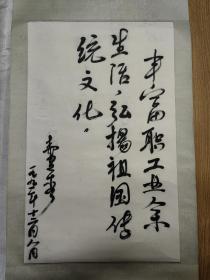 丰富职工业余
生活，弘扬祖国传
统文化。
一九九一年十二月八日